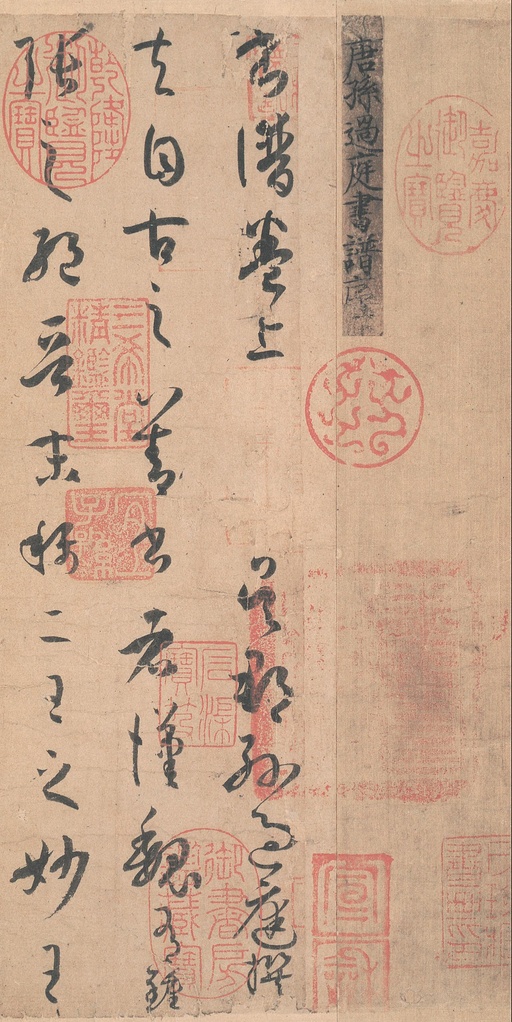 嘉慶御覽之寶
唐孫過庭書譜序
宣和
書譜卷上
吳郡孫過庭撰
夫自古之善書者漢魏有鍾
張之絕晉末稱二王之妙王
石渠寶笈
御書房鑑藏寶
乾隆御覽之寶
三希堂精鑑璽
宜子孫